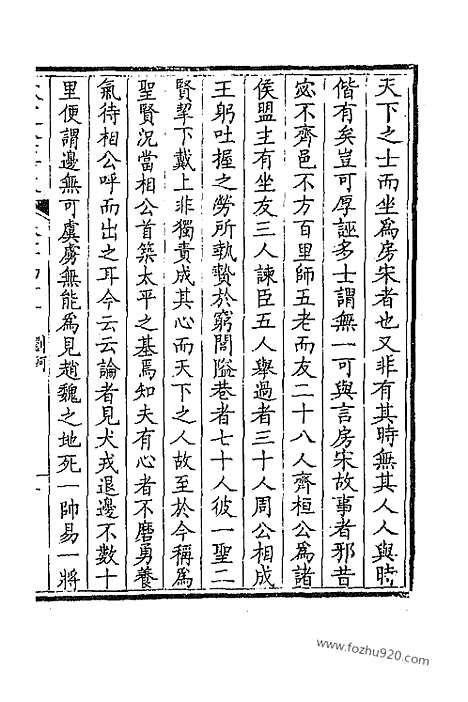 天下之士而坐爲房宋者也又非有其時無其人人與時
偕有矣豈可厚誣多士謂無一可與言房宋故事者邪昔
宓不齊邑不方百里師五老而友二十八人齊桓公爲諸
侯盟主有坐友三人諫臣五人舉過者三十人周公相成
王躬吐握之勞所執贄於窮閻隘巷者七十人彼一聖二
賢挈下戴上非獨責成其心而天下之人故至於今稱爲
聖賢況當相公首築太平之基焉知夫有心者不磨勇養
氣待相公呼而出之耳今云云論者見犬戎退邊不數十
里便謂邊無可虞虜無能爲見趙魏之地死一帥易一將
劉軻
www.fozhu920.com